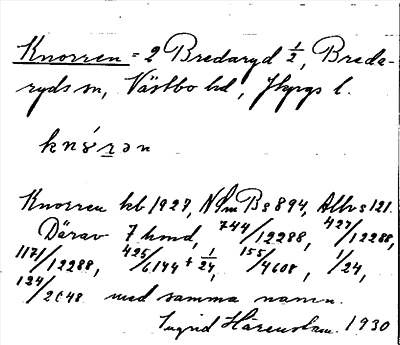 Knorren = 2 Bredaryd 1/2, Breda-
ryds sn, Västbo hd, Jkpgs l.
knórən
Knorren kb 1927, NSmB s 894, Allh s 121.
Därav 7 hmd, 744/12288, 427/12288,
1171/12288, 425/6144 + 1/24, 155/4608, 1/24,
124/2048 med samma namn.
Ingrid Härenstam. 1930